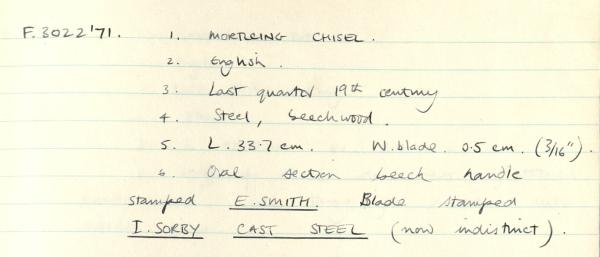 F.3022'71. 1. MORTICING CHISEL.
2. English.
3. Last quarter 19th century
4. Steel, beechwood.
5. L. 33.7 cm. W. blade. 0.5 cm. (3/16").
6. Oval section beech handle
stamped E. SMITH. Blade stamped
I. SORBY CAST STEEL (now indistinct).